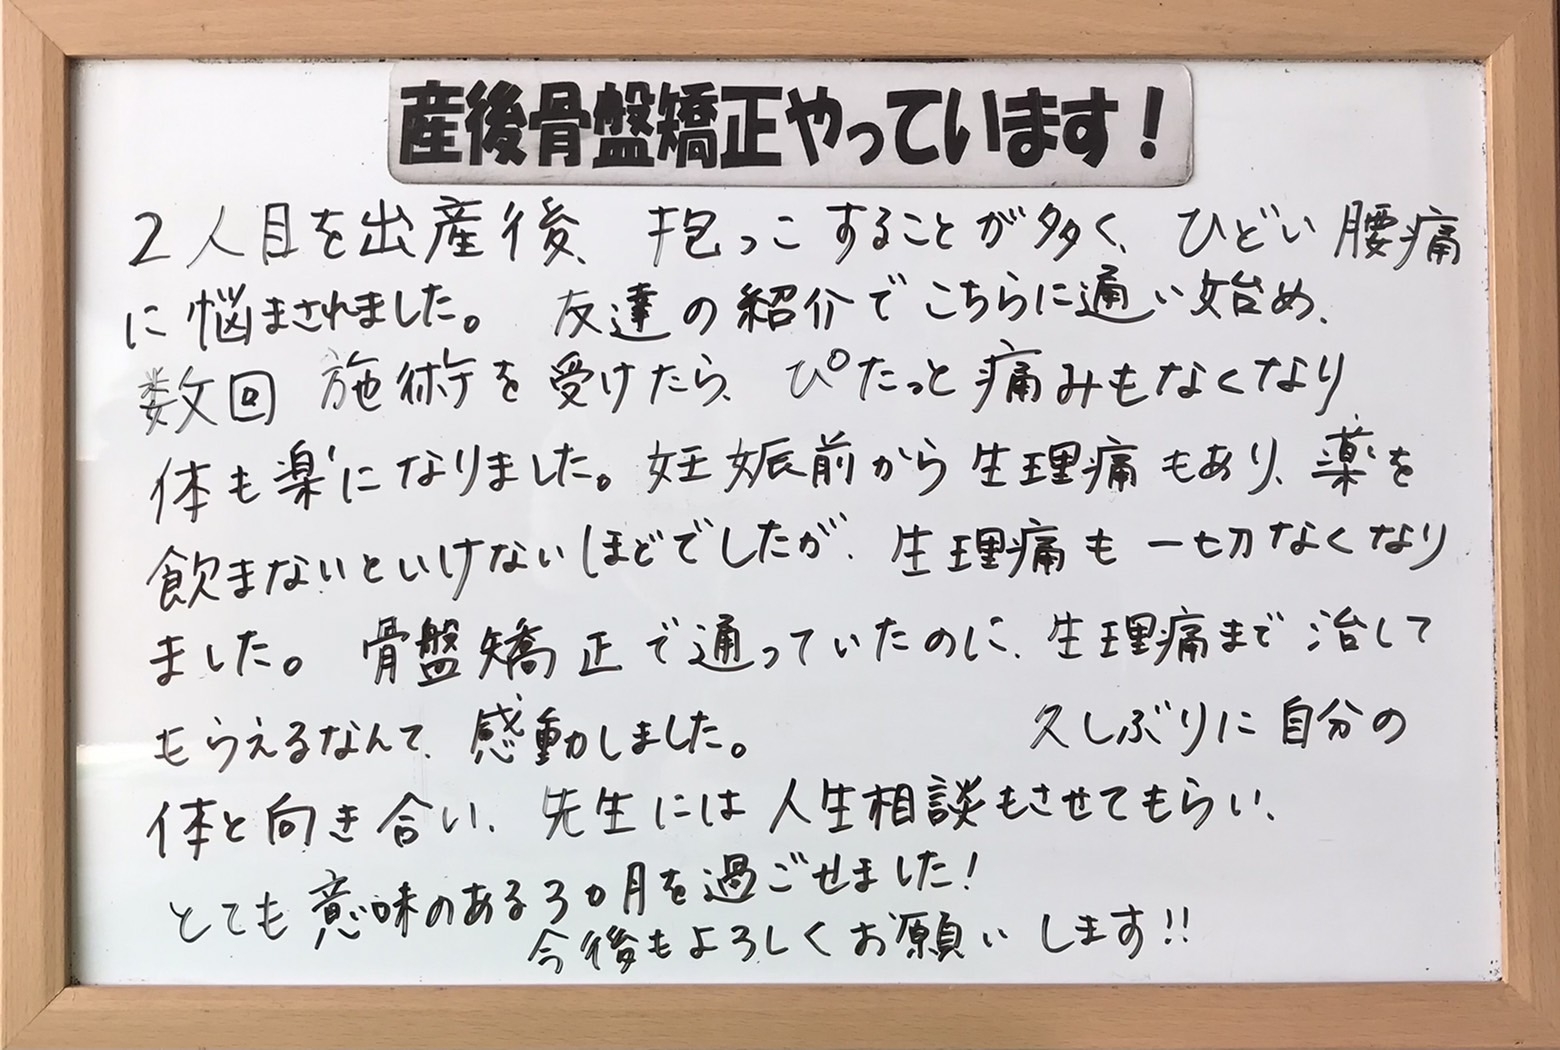 産後骨盤矯正やっています!
2人目を出産後、抱っこすることが多く、ひどい腰痛
に悩まされました。友達の紹介でこちらに通い始め、
数回施術を受けたら、ぴたっと痛みもなくなり
体も楽になりました。妊娠前から生理痛もあり、薬を
飲まないといけないほどでしたが、生理痛も一切なくなり
ました。骨盤矯正で通っていたのに、生理痛まで治して
もらえるなんて、感動しました。 久しぶりに自分の
体と向き合い、先生には人生相談もさせてもらい、
とても意味のある3カ月を過ごせました!
今後もよろしくお願いします!!